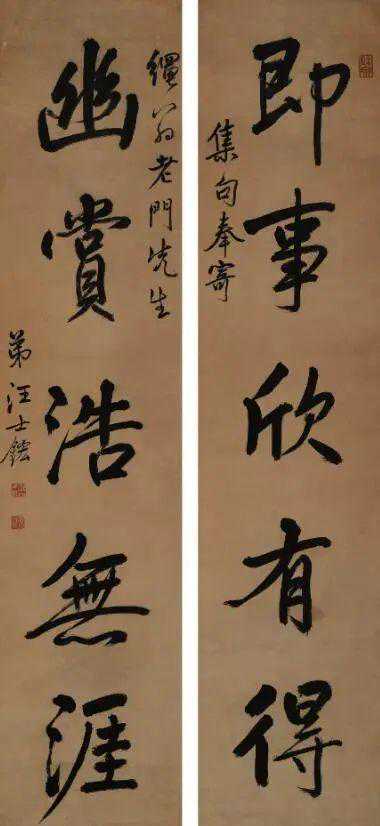 即事欣有得
集句奉寄
繩翁老門先生
幽賞浩無涯
弟汪士鋐